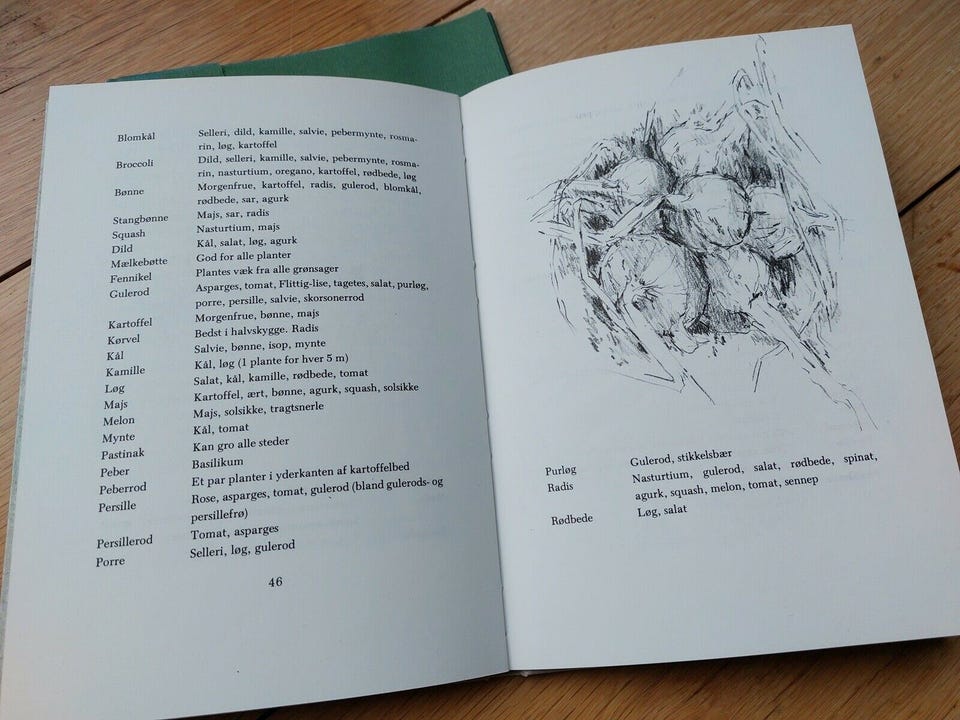 Blomkål Selleri, dild, kamille, salvie, pebermynte, rosma-
rin, løg, kartoffel
Broccoli Dild, selleri, kamille, salvie, pebermynte, rosma-
rin, nasturtium, oregano, kartoffel, rødbede, løg
Bønne Morgenfrue, kartoffel, radis, gulerod, blomkål,
rødbede, sar, agurk
Stangbønne Majs, sar, radis
Squash Nasturtium, majs
Dild Kål, salat, løg, agurk
Mælkebøtte God for alle planter
Fennikel Plantes væk fra alle grønsager
Gulerod Asparges, tomat, Flittig-lise, tagetes, salat, purløg,
porre, persille, salvie, skorsonerrod
Kartoffel Morgenfrue, bønne, majs
Kørvel Bedst i halvskygge. Radis
Kål Salvie, bønne, isop, mynte
Kamille Kål, løg (1 plante for hver 5 m)
Løg Salat, kål, kamille, rødbede, tomat
Majs Kartoffel, ært, bønne, agurk, squash, solsikke
Melon Majs, solsikke, tragtsnerle
Mynte Kål, tomat
Pastinak Kan gro alle steder
Peber Basilikum
Peberrod Et par planter i yderkanten af kartoffelbed
Persille Rose, asparges, tomat, gulerod (bland gulerods- og
persillefrø)
Persillerod Tomat, asparges
Porre Selleri, løg, gulerod
46
Purløg Gulerod, stikkelsbær
Radis Nasturtium, gulerod, salat, rødbede, spinat,
agurk, squash, melon, tomat, sennep
Rødbede Løg, salat